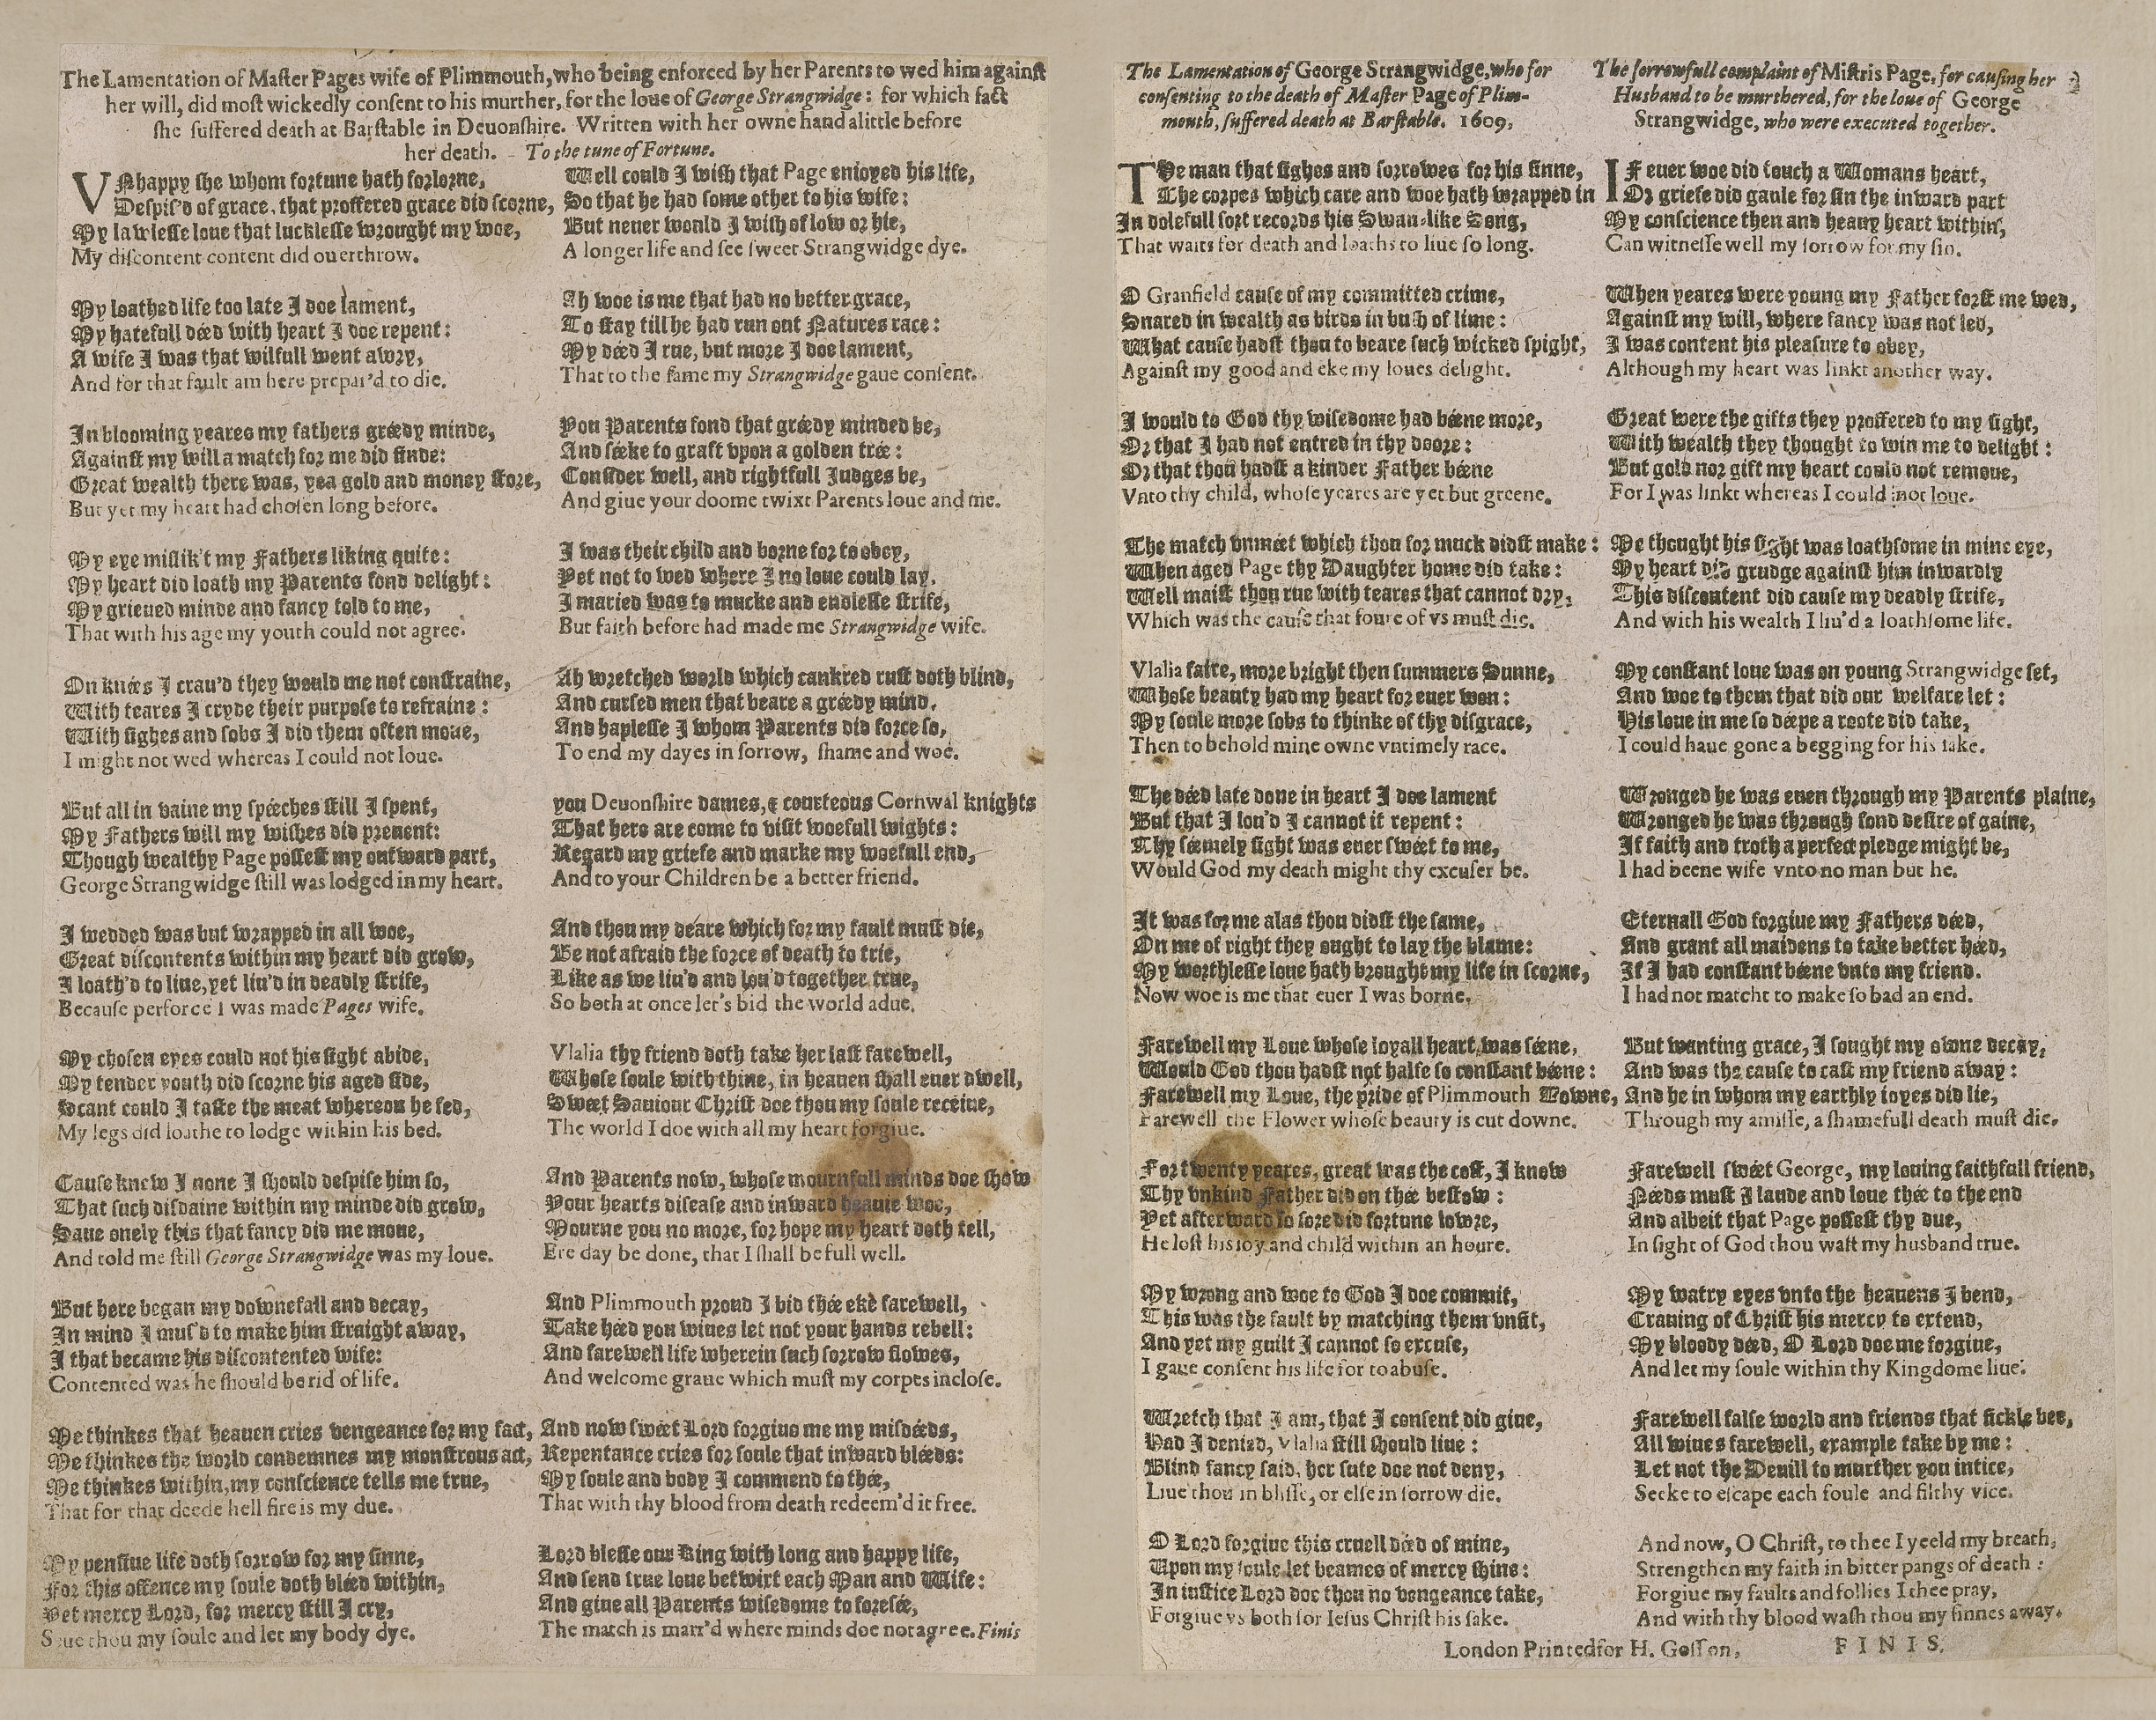 The Lamentation of Maſter Pages wife of Plimmouth, who being enforced by her Parents to wed him againſt
her will, did moſt wickedly conſent to his murther, for the loue of George Strangwidge: for which fact
ſhe ſuffered death at Barſtable in Deuonſhire. Written with her owne hand a little before
her death. To the tune of Fortune.
VNhappy ſhe whom fortune hath forlorne,
Deſpiſ'd of grace, that proffered grace did ſcorne,
My lawleſſe loue that luckleſſe wrought my woe,
My diſcontent content did ouerthrow.
My loathed life too late I doe lament,
My hatefull déed with heart I doe repent:
A wife I was that wilfull went awry,
And for that fault am here prepar'd to die.
In blooming yeares my fathers gréedy minde,
Againſt my will a match for me did finde:
Great wealth there was, yea gold and money ſtore,
But yet my heart had choſen long before.
My eye miſlik't my Fathers liking quite:
My heart did loath my Parents fond delight:
My grieued minde and fancy told to me,
That with his age my youth could not agree.
On knées I crau'd they would me not conſtraine,
With teares I cryde their purpoſe to refraine:
With ſighes and ſobs I did them often moue,
I might not wed whereas I could not loue.
But all in vaine my ſpéeches ſtill I ſpent,
My Fathers will my wiſhes did preuent:
Though wealthy Page poſſeſt my outward part,
George Strangwidge ſtill was lodged in my heart.
I wedded was but wrapped in all woe,
Great diſcontents within my heart did grow,
I loath'd to liue, yet liu'd in deadly ſtrife,
Becauſe perforce I was made Pages wife.
My choſen eyes could not his ſight abide,
My tender youth did ſcorne his aged ſide,
Scant could I taſte the meat whereon he fed,
My legs did loathe to lodge within his bed.
Cauſe knew I none I ſhould deſpiſe him ſo,
That ſuch diſdaine within my minde did grow,
Saue onely this that fancy did me moue,
And told me ſtill George Strangwidge was my loue.
But here began my downefall and decay,
In mind I muſ'd to make him ſtraight away,
I that became his diſcontented wife:
Contented was he ſhould be rid of life.
Me thinkes that heauen cries vengeance for my fact,
Me thinkes the world condemnes my monſtrous act,
Me thinkes within, my conſcience tells me true,
That for that deede hell fire is my due.
My penſiue life doth ſorrow for my ſinne,
For this offence my ſoule doth bléed within,
Yet mercy Lord, for mercy ſtill I cry,
Saue thou my ſoule and let my body dye.
Well could I wiſh that Page enioyed his life,
So that he had ſome other to his wife:
But neuer would I wiſh of low or hie,
A longer life and ſee ſweet Strangwidge dye.
Ah woe is me that had no better grace,
To ſtay till he had run out Natures race:
My déed I rue, but more I doe lament,
That to the ſame my Strangwidge gaue conſent.
You Parents fond that gréedy minded be,
And ſéeke to graft vpon a golden trée:
Conſider well, and rightfull Judges be,
And giue your doome twixt Parents loue and me.
I was their child and borne for to obey,
Yet not to wed where I no loue could lay.
I maried was to mucke and endleſſe ſtrife,
But faith before had made me Strangwidge wife.
Ah wretched world which cankred ruſt doth blind,
And curſed men that beare a gréedy mind,
And hapleſſe I whom Parents did force ſo,
To end my dayes in ſorrow, ſhame and woe.
you Deuonſhire dames, & courteous Cornwal knights
That here are come to viſit woefull wights:
Regard my griefe and marke my woefull end,
And to your Children be a better friend.
And thou my deare which for my fault muſt die,
Be not afraid the force of death to trie,
Like as we liu'd and lou'd together true,
So both at once let's bid the world adue.
Vlalia thy friend doth take her laſt farewell,
Whoſe ſoule with thine, in heauen ſhall euer dwell,
Swéet Sauiour Chriſt doe thou my ſoule receiue,
The world I doe with all my heart forgiue.
And Parents now, whoſe mournfull minds doe ſhow
Your hearts diſeaſe and inward heauie woe,
Mourne you no more, for hope my heart doth tell,
Ere day be done, that I ſhall be full well.
And Plimmouth proud I bid thée eke farewell,
Take héed you wiues let not your hands rebell:
And farewell life wherein ſuch ſorrow flowes,
And welcome graue which muſt my corpes incloſe.
And now ſwéet Lord forgiue me my miſdéeds,
Repentance cries for ſoule that inward bléeds:
My ſoule and body I commend to thée,
That with thy blood from death redeem'd it free.
Lord bleſſe our King with long and happy life,
And ſend true loue betwixt each Man and Wife:
And giue all Parents wiſedome to foreſée,
The match is marr'd where minds doe not agree. Finis
The Lamentation of George Strangwidge, who for
conſenting to the death of Maſter Page of Plim-
mouth, ſuffered death at Barſtable. 1609.
THe man that ſighes and ſorrowes for his ſinne,
The corpes which care and woe hath wrapped in
In dolefull ſort records his Swan-like Song,
That waits for death and loaths to liue ſo long.
O Granfield cauſe of my committed crime,
Snared in wealth as birds in buſh of lime:
What cauſe hadſt thou to beare ſuch wicked ſpight,
Againſt my good and eke my loues delight.
I would to God thy wiſedome had béene more,
Or that I had not entred in thy doore:
Or that thou hadſt a kinder Father béene
Vnto thy child, whoſe yeares are yet but greene.
The match vnméet which thou for muck didſt make:
When aged Page thy Daughter home did take:
Well maiſt thou rue with teares that cannot dry,
Which was the cauſe that foure of vs muſt die.
Vlalia faire, more bright then ſummers Sunne,
Whoſe beauty had my heart for euer won:
My ſoule more ſobs to thinke of thy diſgrace,
Then to behold mine owne vntimely race.
The déed late done in heart I doe lament
But that I lou'd I cannot it repent:
Thy ſéemely ſight was euer ſwéet to me,
Would God my death might thy excuſer be.
It was for me alas thou didſt the ſame,
On me of right they ought to lay the blame:
My worthleſſe loue hath brought my life in ſcorne,
Now woe is me that euer I was borne.
Farewell my Loue whoſe loyall heart was ſéene,
Would God thou hadſt not halfe ſo conſtant béene:
Farewell my Loue, the pride of Plimmouth Towne,
Farewell the Flower whoſe beauty is cut downe.
For twenty yeares, great was the coſt, I know
Thy vnkind Father did on thée beſtow:
Yet afterward ſo ſore did fortune lowre,
He loſt his ioy and child within an houre.
My wrong and woe to God I doe commit,
This was the fault by matching them vnfit,
And yet my guilt I cannot ſo excuſe,
I gaue conſent his life for to abuſe.
Wretch that I am, that I conſent did giue,
Had I denied, Vlalia ſtill ſhould liue:
Blind fancy ſaid, her ſute doe not deny,
Liue thou in bliſſe, or elſe in ſorrow die.
O Lord forgiue this cruell déed of mine,
Upon my ſoule let beames of mercy ſhine:
In iuſtice Lord doe thou no vengeance take,
Forgiue vs both for Ieſus Chriſt his ſake.
The ſorrowfull complaint of Miſtris Page, for cauſing her
Husband to be murthered, for the loue of George
Strangwidge, who were executed together.
IF euer woe did touch a Womans heart,
Or griefe did gaule for ſin the inward part
My conſcience then and heauy heart within,
Can witneſſe well my ſorrow for my ſin.
When yeares were young my Father forſt me wed,
Againſt my will, where fancy was not led,
I was content his pleaſure to obey,
Although my heart was linkt another way.
Great were the gifts they proffered to my ſight,
With wealth they thought to win me to delight:
But gold nor gift my heart could not remoue,
For I was linkt whereas I could not loue.
Me thought his ſight was loathſome in mine eye,
My heart did grudge againſt him inwardly
This diſcontent did cauſe my deadly ſtrife,
And with his wealth I liu'd a loathſome life.
My conſtant loue was on young Strangwidge ſet,
And woe to them that did our welfare let:
His loue in me ſo déepe a roote did take,
I could haue gone a begging for his ſake.
Wronged he was euen through my Parents plaine,
Wronged he was through fond deſire of gaine,
If faith and troth a perfect pledge might be,
I had beene wife vnto no man but he.
Eternall God forgiue my Fathers déed,
And grant all maidens to take better héed,
If I had conſtant béene vnto my friend.
I had not matcht to make ſo bad an end.
But wanting grace, I ſought my owne decay,
And was the cauſe to caſt my friend away:
And he in whom my earthly ioyes did lie,
Through my amiſſe, a ſhamefull death muſt die.
Farewell ſwéet George, my louing faithfull friend,
Néeds muſt I laude and loue thée to the end
And albeit that Page poſſeſt thy due,
In ſight of God thou waſt my husband true.
My watry eyes vnto the heauens I bend,
Crauing of Chriſt his mercy to extend,
My bloody déed, O Lord doe me forgiue,
And let my ſoule within thy Kingdome liue.
Farewell falſe world and friends that fickle bee,
All wiues farewell, example take by me:
Let not the Deuill to murther you intice,
Seeke to eſcape each foule and filthy vice.
And now, O Chriſt, to thee I yeeld my breath,
Strengthen my faith in bitter pangs of death:
Forgiue my faults and follies I thee pray,
And with thy blood waſh thou my ſinnes away.
London Printed for H. Goſſon,
FINIS.